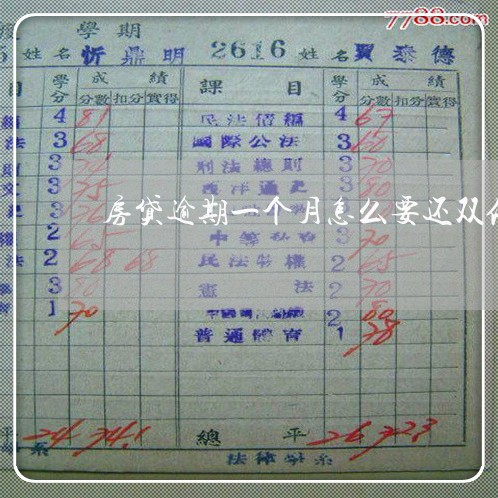 7788.com
學期
姓名 忻鼎明 2616 姓名 賈泰德
目 學分 成績 課目 學分 成績
分數 扣分 實得 分數 扣分 實得
4 81 民法債編 4 67
法 3 68 國際公法 3 60
3 刑法總則 3 70
3 75 西洋通史 3 80
房贷逾期一个月怎么要还双
2 65 3 70
法 2 68 68 民法物權 2 65
3 80 憲法 2 70
1 70 2 80
普通體育 1 78
24 74.1 總平 26 72.3
系 法律學系